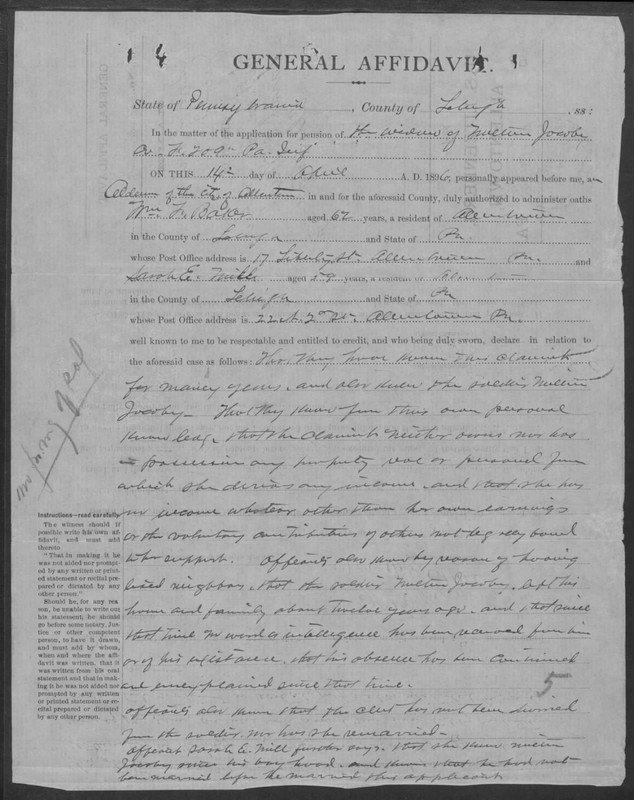 GENERAL AFFIDAVIT.
State of Pennsylvania, County of Lehigh, ss:
In the matter of the application for pension of the widow of Milton Jacoby
Co. F. 202" Pa. Inf
ON THIS 14th day of April A. D. 1896, personally appeared before me, an
Alderman of the City of Allentown in and for the aforesaid County, duly authorized to administer oaths
Wm. F. Baker aged 62 years, a resident of Allentown
in the County of Lehigh and State of Pa
whose Post Office address is 17 Liberty St. Allentown Pa. and
Sarah E. Mill aged 59 years, a resident of Allentown
in the County of Lehigh and State of Pa
whose Post Office address is 22 N. 2nd St. Allentown Pa.
well known to me to be respectable and entitled to credit, and who being duly sworn, declare in relation to
the aforesaid case as follows: That they have known this claimant
for many years, and also knew the soldier Milton
Jacoby - That they know from their own personal
knowledge that the claimant neither owns nor has
in possession any property real or personal from
which she derives any income, and that she has
no income whatever other than her own earnings
or the voluntary contributions of others not legally bound
to her support. Affiants also know by reason of having
lived neighbors, that the soldier Milton Jacoby, left his
home and family about twelve years ago, and that since
that time no word or intelligence has been received from him
or of his existence, that his absence has been continued
and unexplained since that time.
Affiants also know that the clmt has not been divorced
from the soldier nor has she remarried.
Affiant Sarah E. Mill further says, that she knew Milton
Jacoby since his boyhood, and knows that he had not
been married before he married this applicant
5
Instructions—read carefully
The witness should if
possible write his own af-
fidavit, and must add
thereto
"That in making it he
was not aided nor prompt-
ed by any written or print-
ed statement or recital pre-
pared or dictated by any
other person."
Should he, for any rea-
son, be unable to write out
his statement, he should
go before some notary, Jus-
tice or other competent
person, to have it drawn,
and must add by whom,
when and where the affi-
davit was written, that it
was written from his oral
statement and that in mak-
ing it he was not aided nor
prompted by any written
or printed statement or re-
cital prepared or dictated
by any other person.